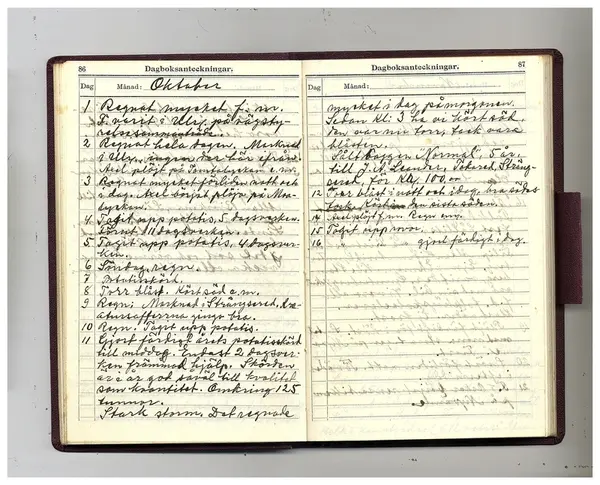 86
Dagboksanteckningar.
Dag
Månad: Oktober
1 Regnat mycket f. m.
T. varit i Ulr. på vägsty-
relsesammanträde.
2 Regnat hela dagen. Marknad
i Ulr., ingen var här ifrån.
Axel plöjt på e. m.
3 Regnat mycket förliden natt och
i dag. Axel börjat plöja på Mos-
lyckan.
4 Tagit upp potatis, 5 dagsverken.
Förut 11 dagsverken.
5 Tagit upp potatis, 4 dagsver-
ken.
6 Söndag, regn.
7 Potatisskörd.
8 Torr blåst. Kört säd e. m.
9 Regn. Marknad i Strängsered. Kre-
atursaffärerna gingo bra.
10 Regn. Tagit upp potatis.
11 Gjort färdigt årets potatisskörd
till middag. Endast 2 dagsver-
ken främmad hjälp. Skörden
är god såväl till kvalitet
som kvantitet. Omkring 125
tunnor.
Stark storm. Det regnade
87
Dagboksanteckningar.
Dag
Månad:
mycket i dag på morgonen.
Sedan kl: 3 ha vi kört säd,
den var nu torr, tack vare
blåsten.
Sålt Baggen "Normal", 5 år,
till J. A. Leander, Sträng-
sered, för Kr. 100,00
12 Torr blåst i natt och i dag, bra sädes-
torka. den sista säden.
14 Axel plöjt f. m. Regn e. m.
15 Tagit upp
16 " " " gjort färdigt i dag.